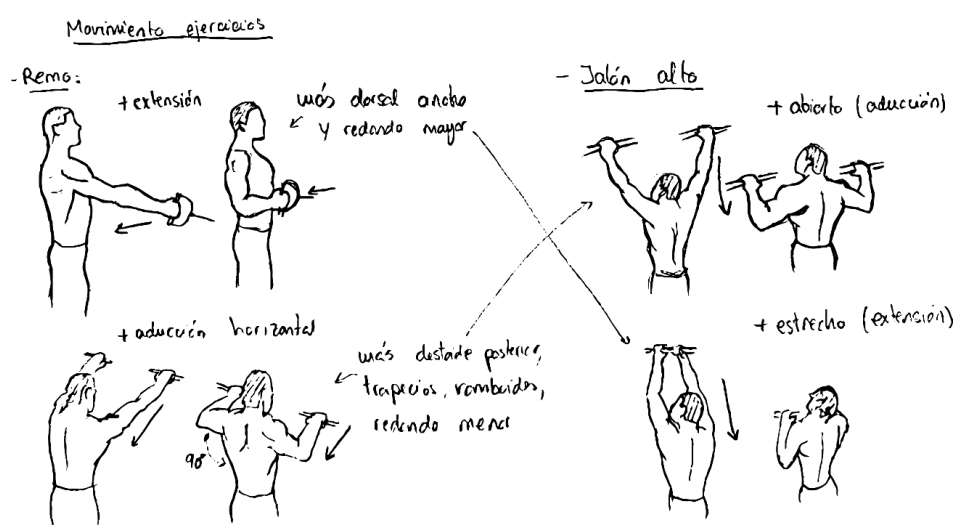 Movimiento ejercicios
- Remo:
+ extensión
más dorsal ancho
y redondo mayor
+ aducción horizontal
más deltoide posterior,
trapecios, romboides,
redondo menor
90°
- Jalón alto
+ abierto (aducción)
+ estrecho (extensión)